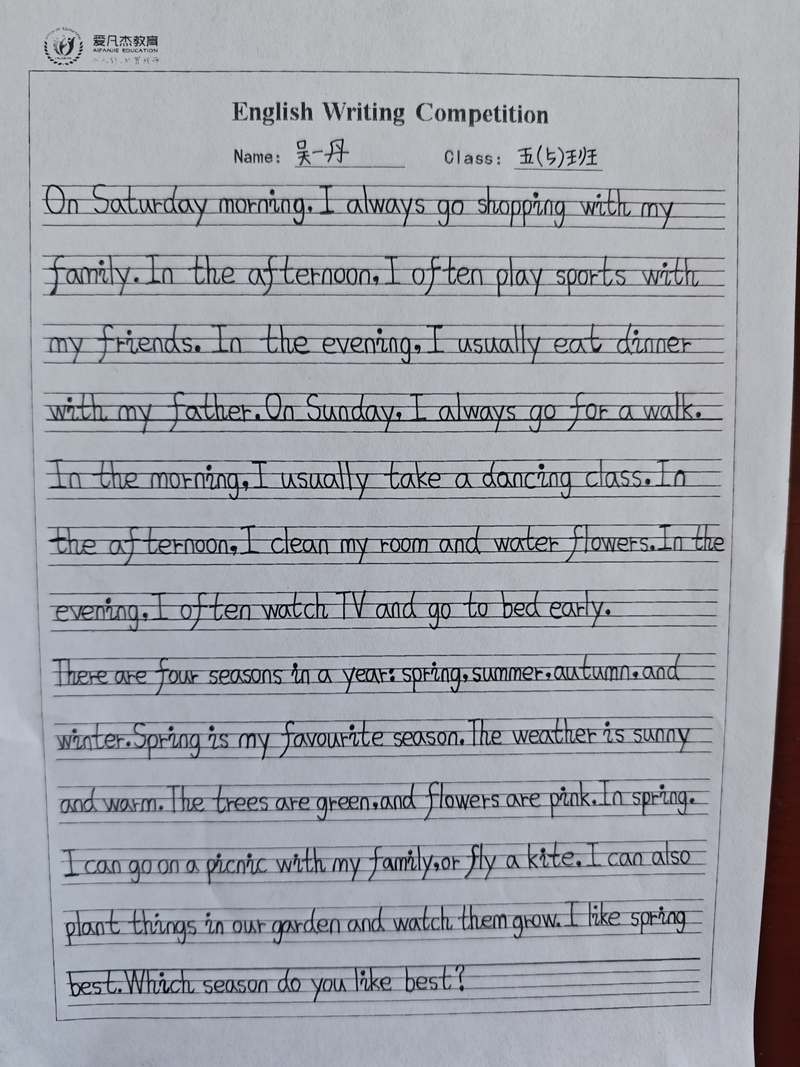 爱凡杰教育
AIFANJIE EDUCATION
English Writing Competition
Name: 吴一丹 Class: 五(5)班
On Saturday morning, I always go shopping with my
family. In the afternoon, I often play sports with
my friends. In the evening, I usually eat dinner
with my father. On Sunday, I always go for a walk.
In the morning, I usually take a dancing class. In
the afternoon, I clean my room and water flowers. In the
evening, I often watch TV and go to bed early.
There are four seasons in a year: spring, summer, autumn, and
winter. Spring is my favourite season. The weather is sunny
and warm. The trees are green, and flowers are pink. In spring,
I can go on a picnic with my family, or fly a kite. I can also
plant things in our garden and watch them grow. I like spring
best. Which season do you like best?